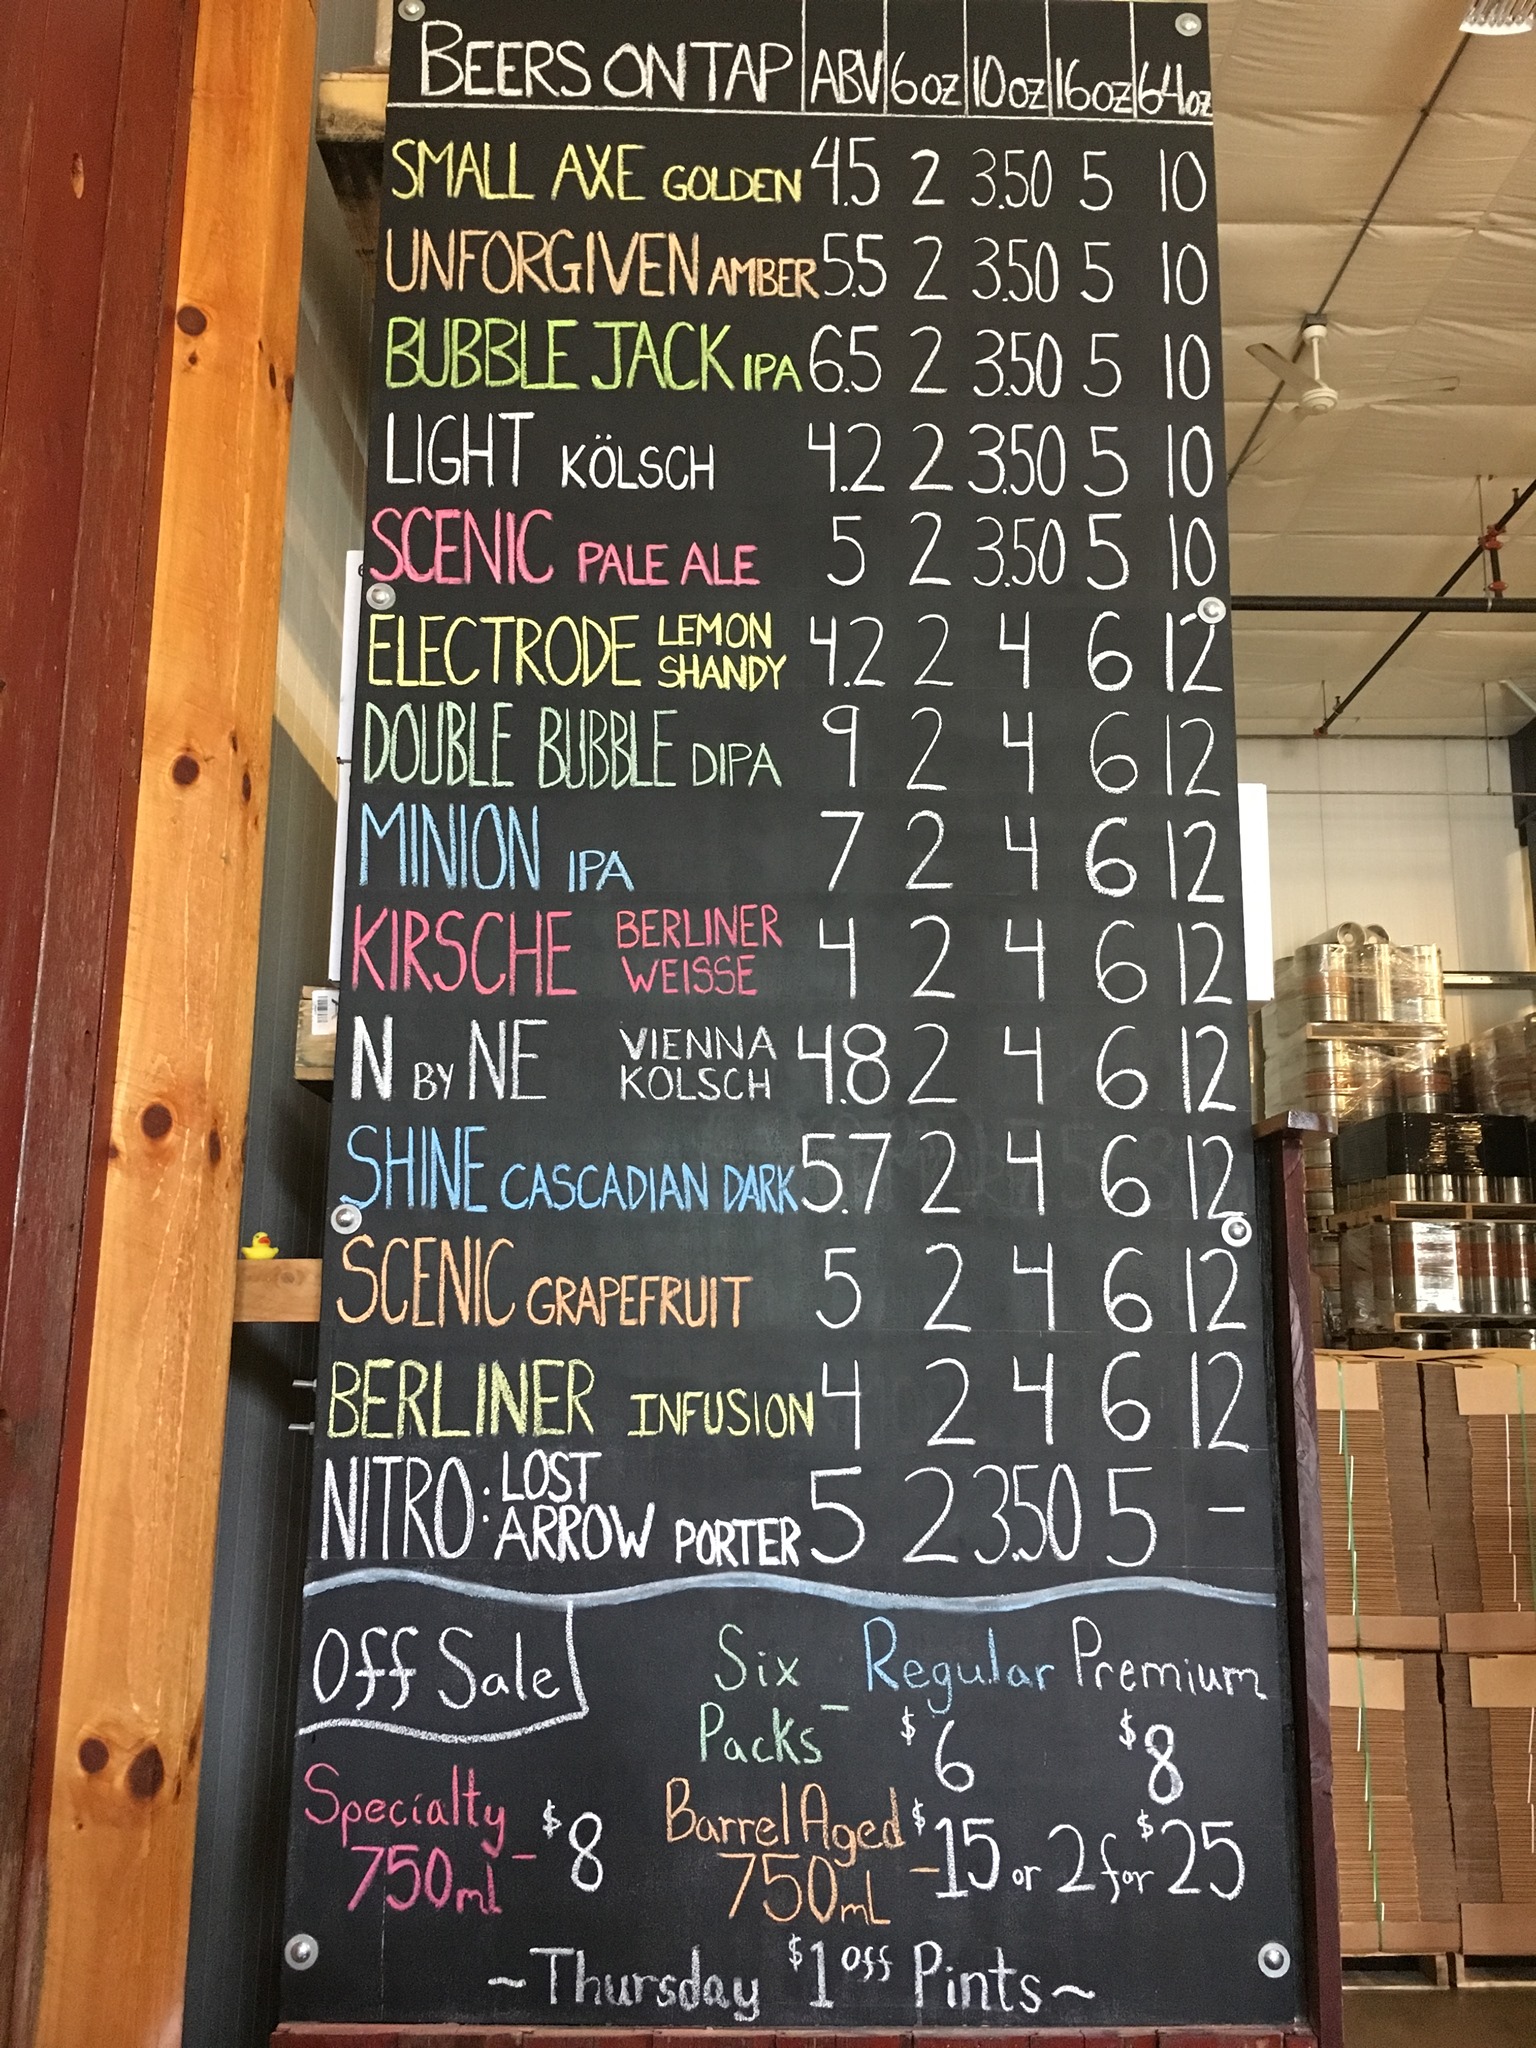 BEERS ON TAP ABV 6oz 10oz 16oz 64oz
SMALL AXE GOLDEN 4.5 2 3.50 5 10
UNFORGIVEN AMBER 5.5 2 3.50 5 10
BUBBLE JACK IPA 6.5 2 3.50 5 10
LIGHT KÖLSCH 4.2 2 3.50 5 10
SCENIC PALE ALE 5 2 3.50 5 10
ELECTRODE LEMON SHANDY 4.2 2 4 6 12
DOUBLE BUBBLE DIPA 9 2 4 6 12
MINION IPA 7 2 4 6 12
KIRSCHE BERLINER WEISSE 4 2 4 6 12
N BY NE VIENNA KOLSCH 4.8 2 4 6 12
SHINE CASCADIAN DARK 5.7 2 4 6 12
SCENIC GRAPEFRUIT 5 2 4 6 12
BERLINER INFUSION 4 2 4 6 12
NITRO: LOST ARROW PORTER 5 2 3.50 5 -
Off Sale
Six Packs - Regular $6 Premium $8
Specialty 750ml - $8
Barrel Aged 750mL - $15 or 2 for $25
~Thursday $1 off Pints~